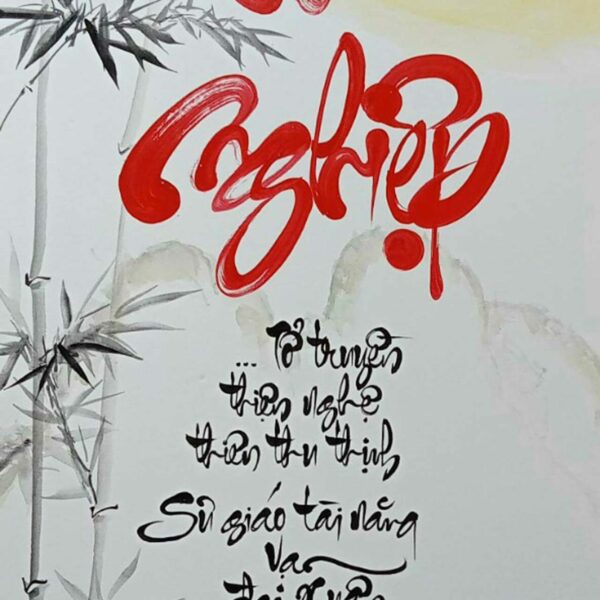 Nghiệp
... Tổ truyền
thiện nghệ
thiên thu thịnh
Sư giáo tài năng
vạn
đại xuân